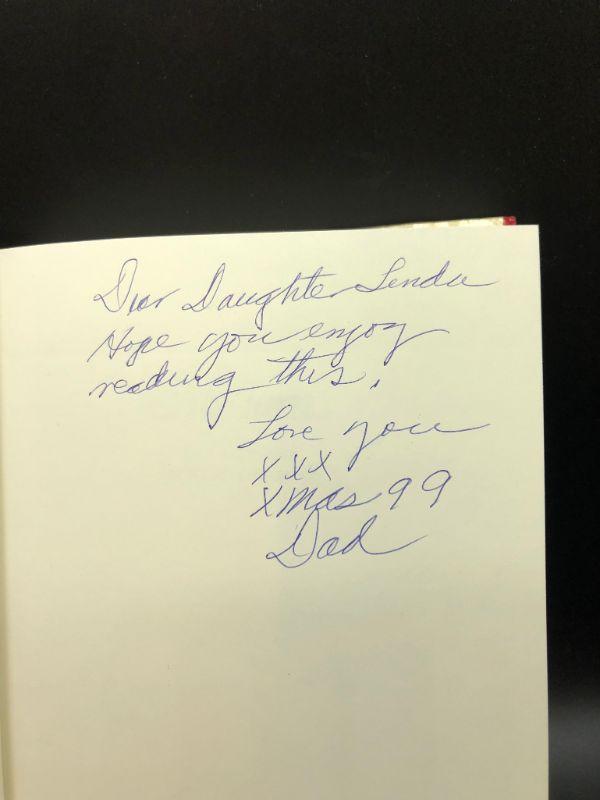 Dear Daughter Linda
Hope you enjoy
reading this.
Love you
XXX
Xmas 99
Dad